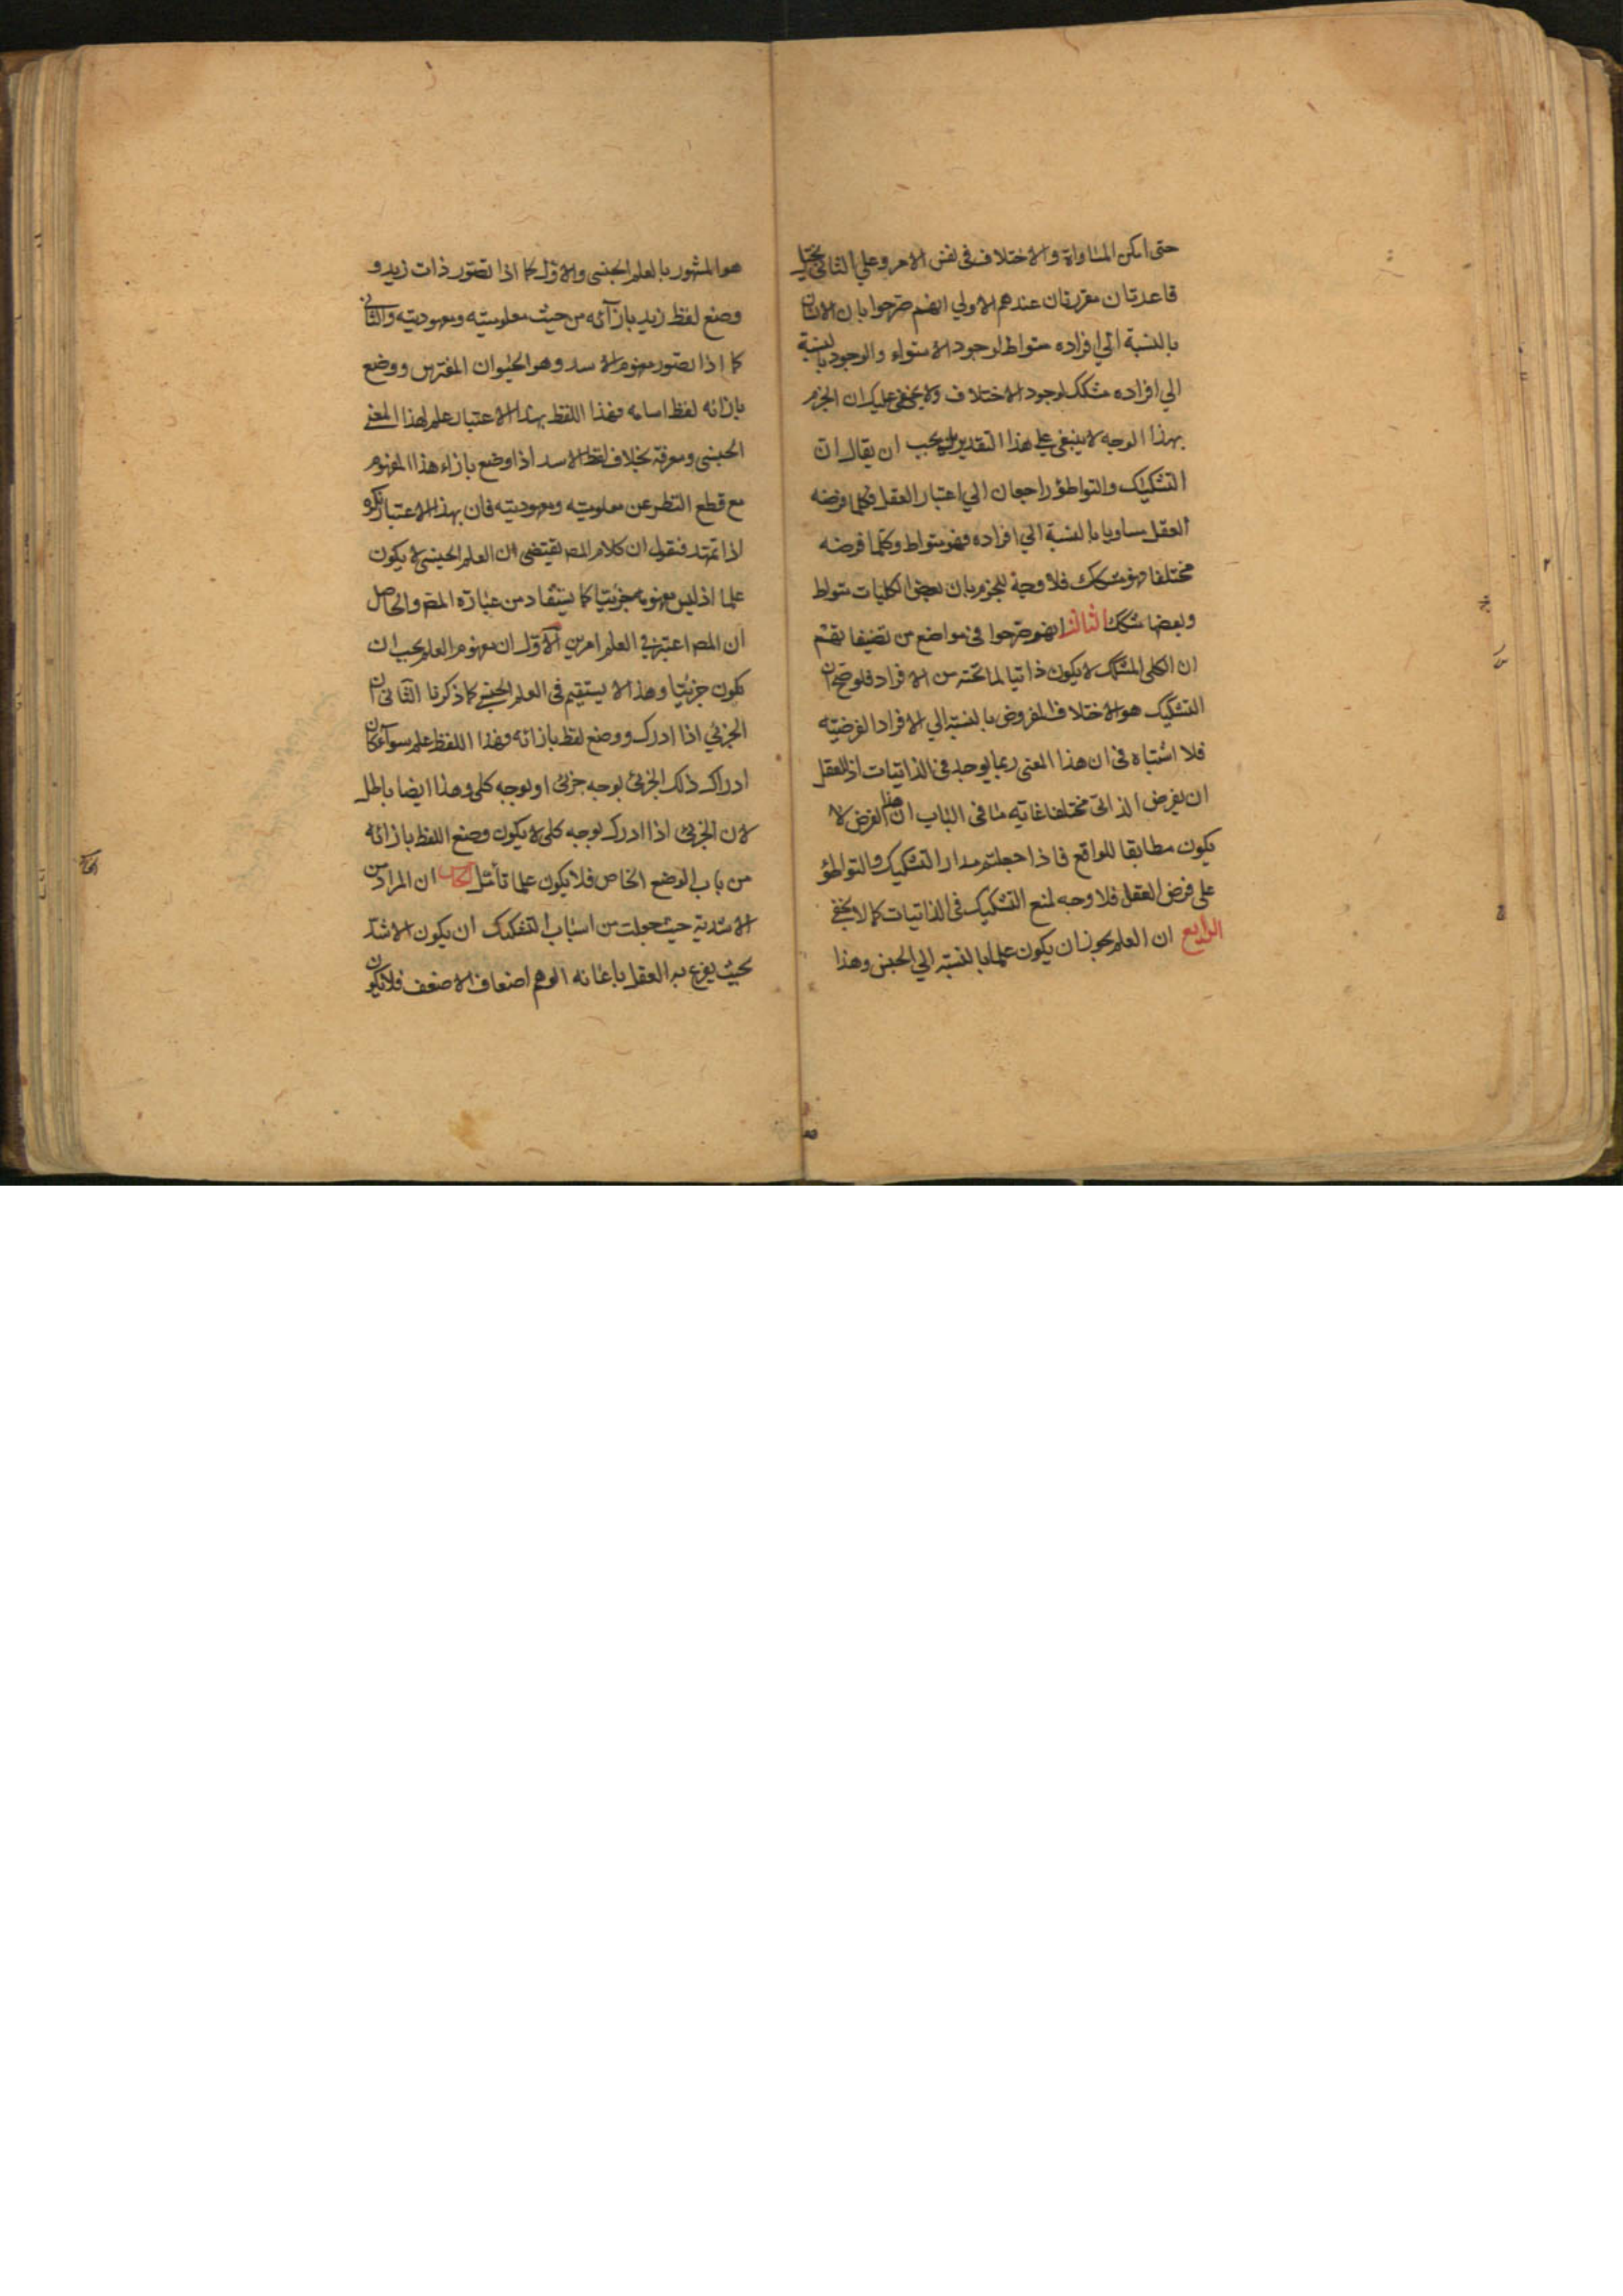 حتى امكن المساواة والاختلاف فى نفس الامر وعلي الثاني يختل
قاعدتان مقررتان عندهم الاولي انهم صرحوا بان الانسان
بالنسبة الي افراده متواط لوجود الاستواء والوجود بالنسبة
الي افراده مشكك لوجود الاختلاف ولا يخفى عليك ان الجزم
بهذا الوجه لا ينبغى على هذا التقدير بل يجب ان يقال ان
التشكيك والتواطؤ راجعان الي اعتبار العقل فكلما فرضه
العقل مساويا بالنسبة الي افراده فهو متواط وكلما فرضه
مختلفا فهو مشكك فلا وجه للجزم بان بعض الكليات متواط
وبعضها مشكك الثالث انهم صرحوا فى مواضع من تصنيفاتهم
ان الكلى المشكك لا يكون ذاتيا لما تحته من الافراد فلو صح ان
التشكيك هو الاختلاف المفروض بالنسبة الي الافراد الفرضيه
فلا اشتباه فى ان هذا المعنى ربما يوجد فى الذاتيات اذ للعقل
ان يفرض الذاتى مختلفا غايته ما فى الباب ان هذا الفرض لا
يكون مطابقا للواقع فاذا جعلتم مدار التشكيك والتواطؤ
على فرض العقل فلا وجه لمنع التشكيك فى الذاتيات كما لا يخفى
الرابع ان العلم يجوز ان يكون علما بالنسبة الي الجنس وهذا
هو المشهور بالعلم الجنسى والاول كما اذا تصور ذات زيد و
وضع لفظ زيد بازآئه من حيث معلوميته ومعهوديته والثانى
كما اذا تصور مفهوم الاسد وهو الحيوان المفترس ووضع
بازائه لفظ اسامه فهذا اللفظ بهذا الاعتبار علم لهذا المعنى
الجنسى ومعرفة بخلاف لفظ الاسد اذا وضع بازاء هذا المفهوم
مع قطع النظر عن معلوميته ومعهوديته فان بهذا الاعتبار نكره
اذا تمهد فنقول ان كلام المص يقتضى ان العلم الجنسى لا يكون
علما اذ ليس مفهومه جزئيا كما يستفاد من عبارة المص والحاصل
ان المص اعتبر فى العلم امرين الاول ان مفهوم العلم يجب ان
يكون جزئيا وهذا لا يستقيم فى العلم الجنسى كما ذكرنا الثانى ان
الجزئي اذا ادرك ووضع لفظ بازائه فهذا اللفظ علم سواء كان
ادراك ذلك الجزئى بوجه جزئى او بوجه كلى وهذا ايضا باطل
لان الجزئى اذا ادرك بوجه كلى لا يكون وضع اللفظ بازائه
من باب الوضع الخاص فلا يكون علما تأمل ان المراد من
الاشدية حيث جعلت من اسباب التشكيك ان يكون الاشد
بحيث ينزع به العقل باعانه الوهم اضعاف الاضعف فلا يكون